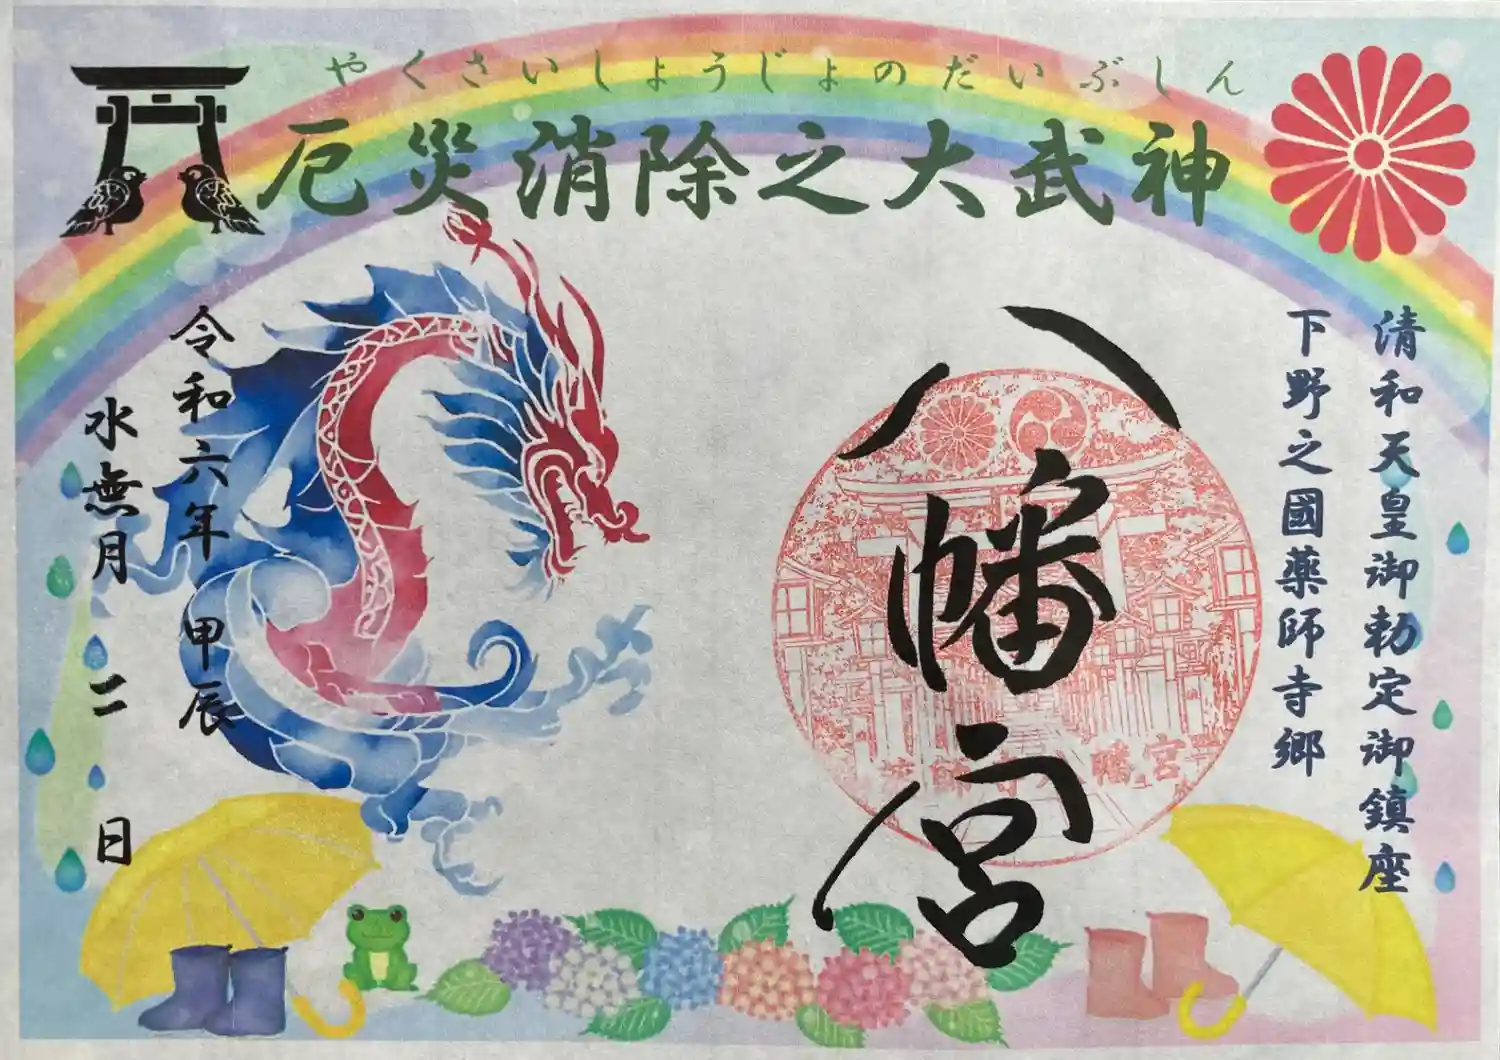 やくさいしょうじょのだいぶしん
厄災消除之大武神
清和天皇御勅定御鎮座
下野之國薬師寺郷
八幡宮
令和六年甲辰
水無月二日